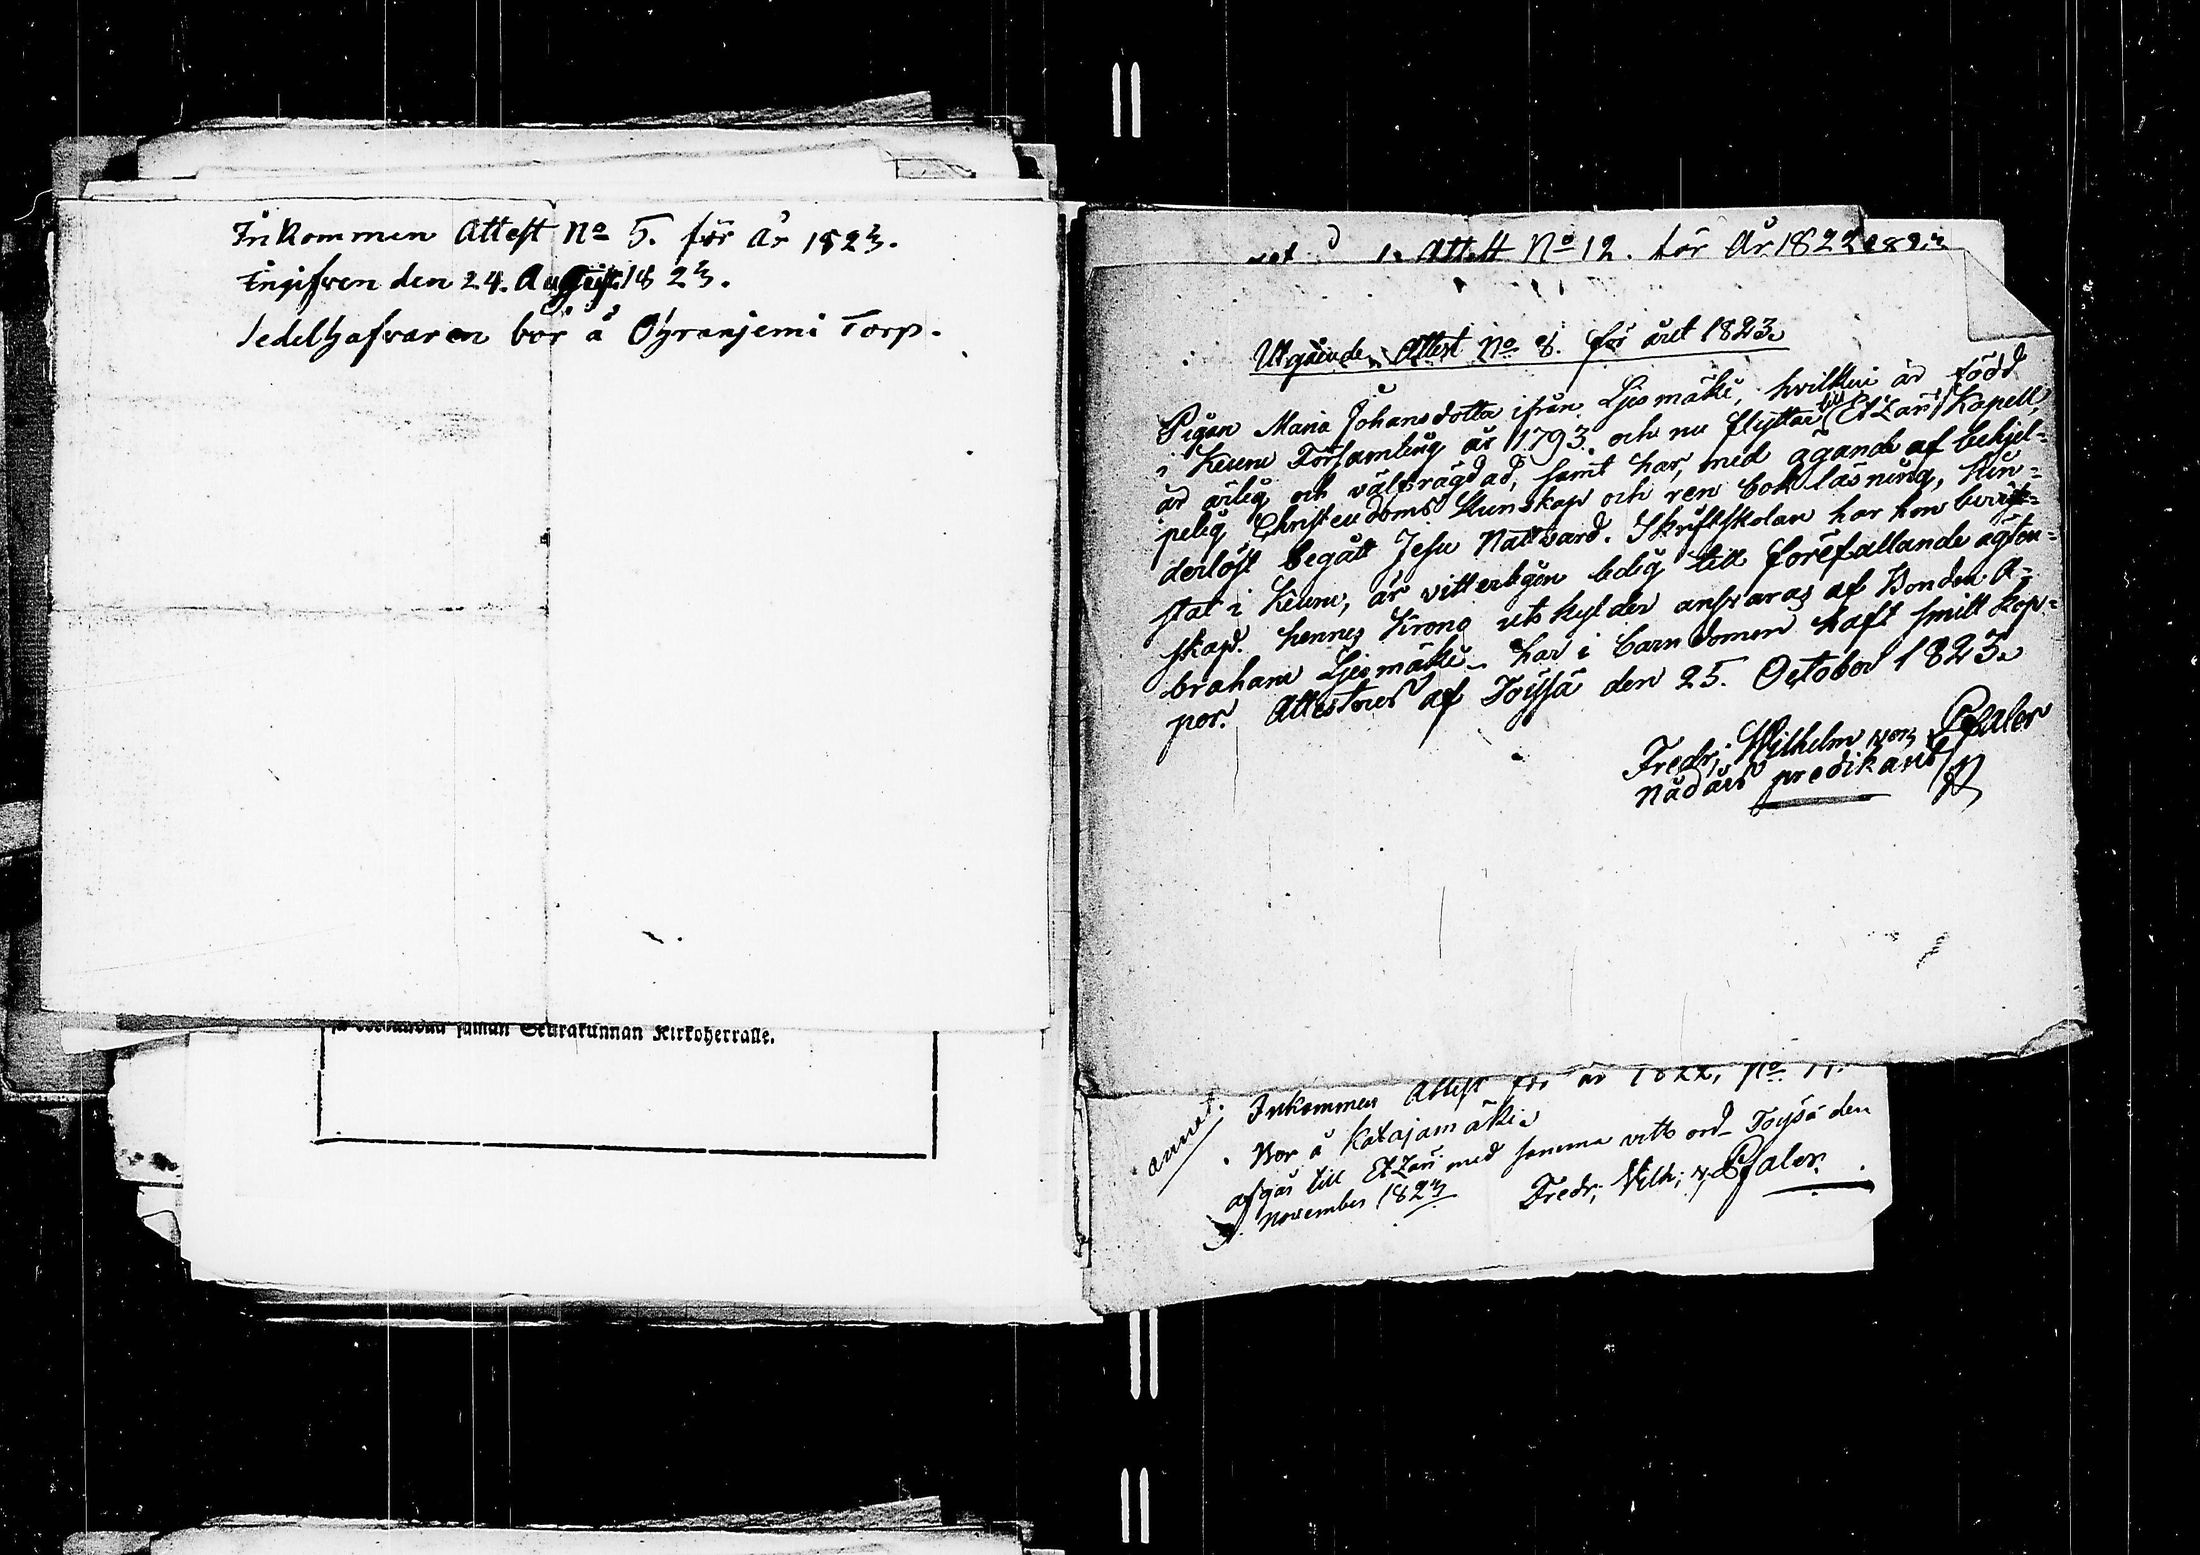 Inkommen Attest No 5. för År 1823.
Ingifven den 24. August. 1823.
Sedelhafvaren bor å Öyranjemi Torp.
Seurakunnan Kirkoherralle.
Attest No 12. för År 1822
Utgående Attest No 8. för året 1823.
Pigan Maria Johansdotter ifrån Ljesmäki, hvilken är född
i Keuru Församling år 1793. och nu flyttar till Etzäri Kapell,
är ärlig och välfrägdad, samt har, med ägande af behjel-
pelig Christendoms Kunskap och ren bok läsning, hin-
derlöst begått Jesu Nattvard. Skriftskolan har hon bevist-
stat i Keuru, är vitterligen ledig till förefallande ägten-
skap. hennes Krono utskylder ansvaras af Bonden A-
braham Ljesmäki. har i barndomen haft smitt kop-
por. Attesteras af Töysä den 25. October 1823.
Fredr; Wilhelm von Pfaler
nådårs predikant
Inkommen Attest för år 1822, No 11.
Bor å Katajamäki
afgår till Etzäri med samma vitts ord. Töysä den
November 1823 Fredr; Vilh; v. Pfaler.